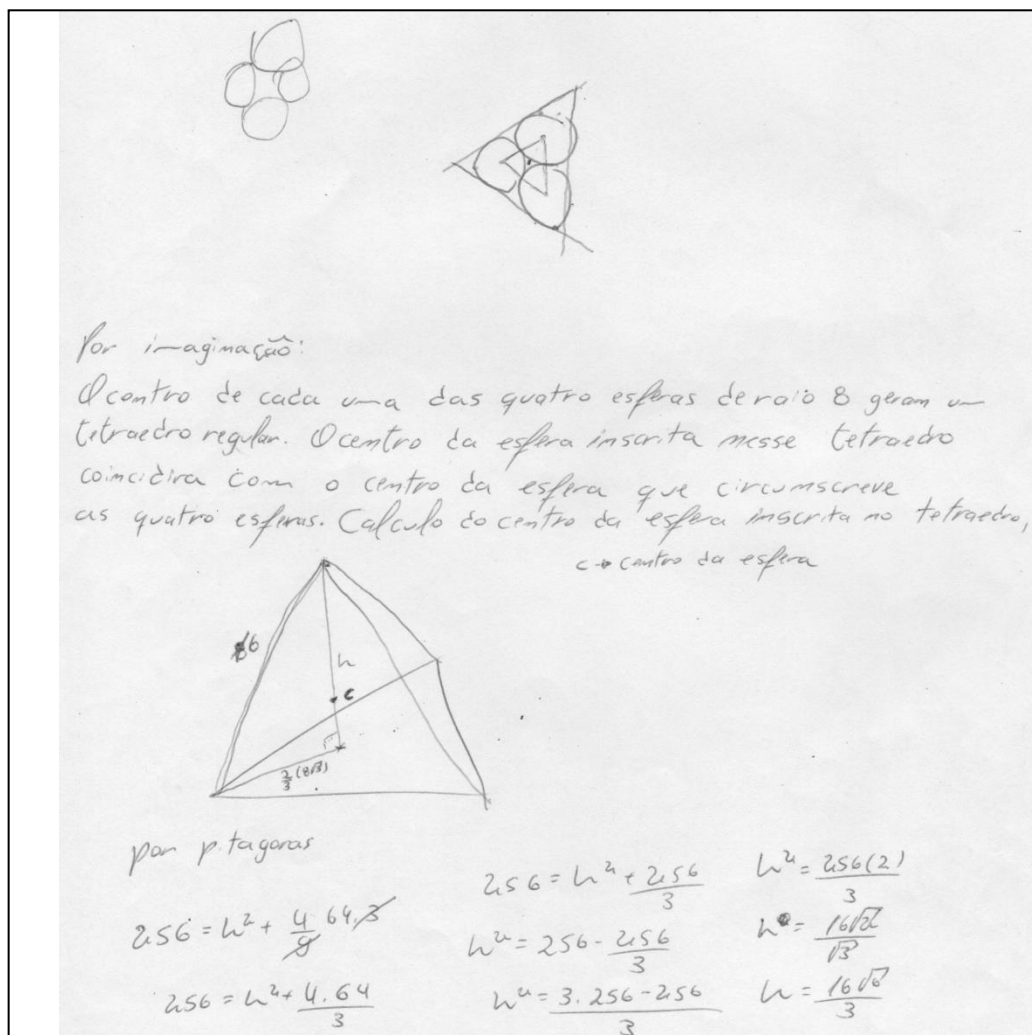 Por imaginação:
O centro de cada uma das quatro esferas de raio 8 geram um
tetraedro regular. O centro da esfera inscrita nesse tetraedro
coincidira com o centro da esfera que circunscreve
as quatro esferas. Calculo do centro da esfera inscrita no tetraedro,
c → centro da esfera
16
h
c
2/3 (8√3)
por pitagoras
256 = h² + 4/9 64.3
256 = h² + 4.64/3
256 = h² + 256/3
h² = 256 - 256/3
h² = 3.256-256/3
h² = 256(2)/3
h = 16√2/√3
h = 16√6/3